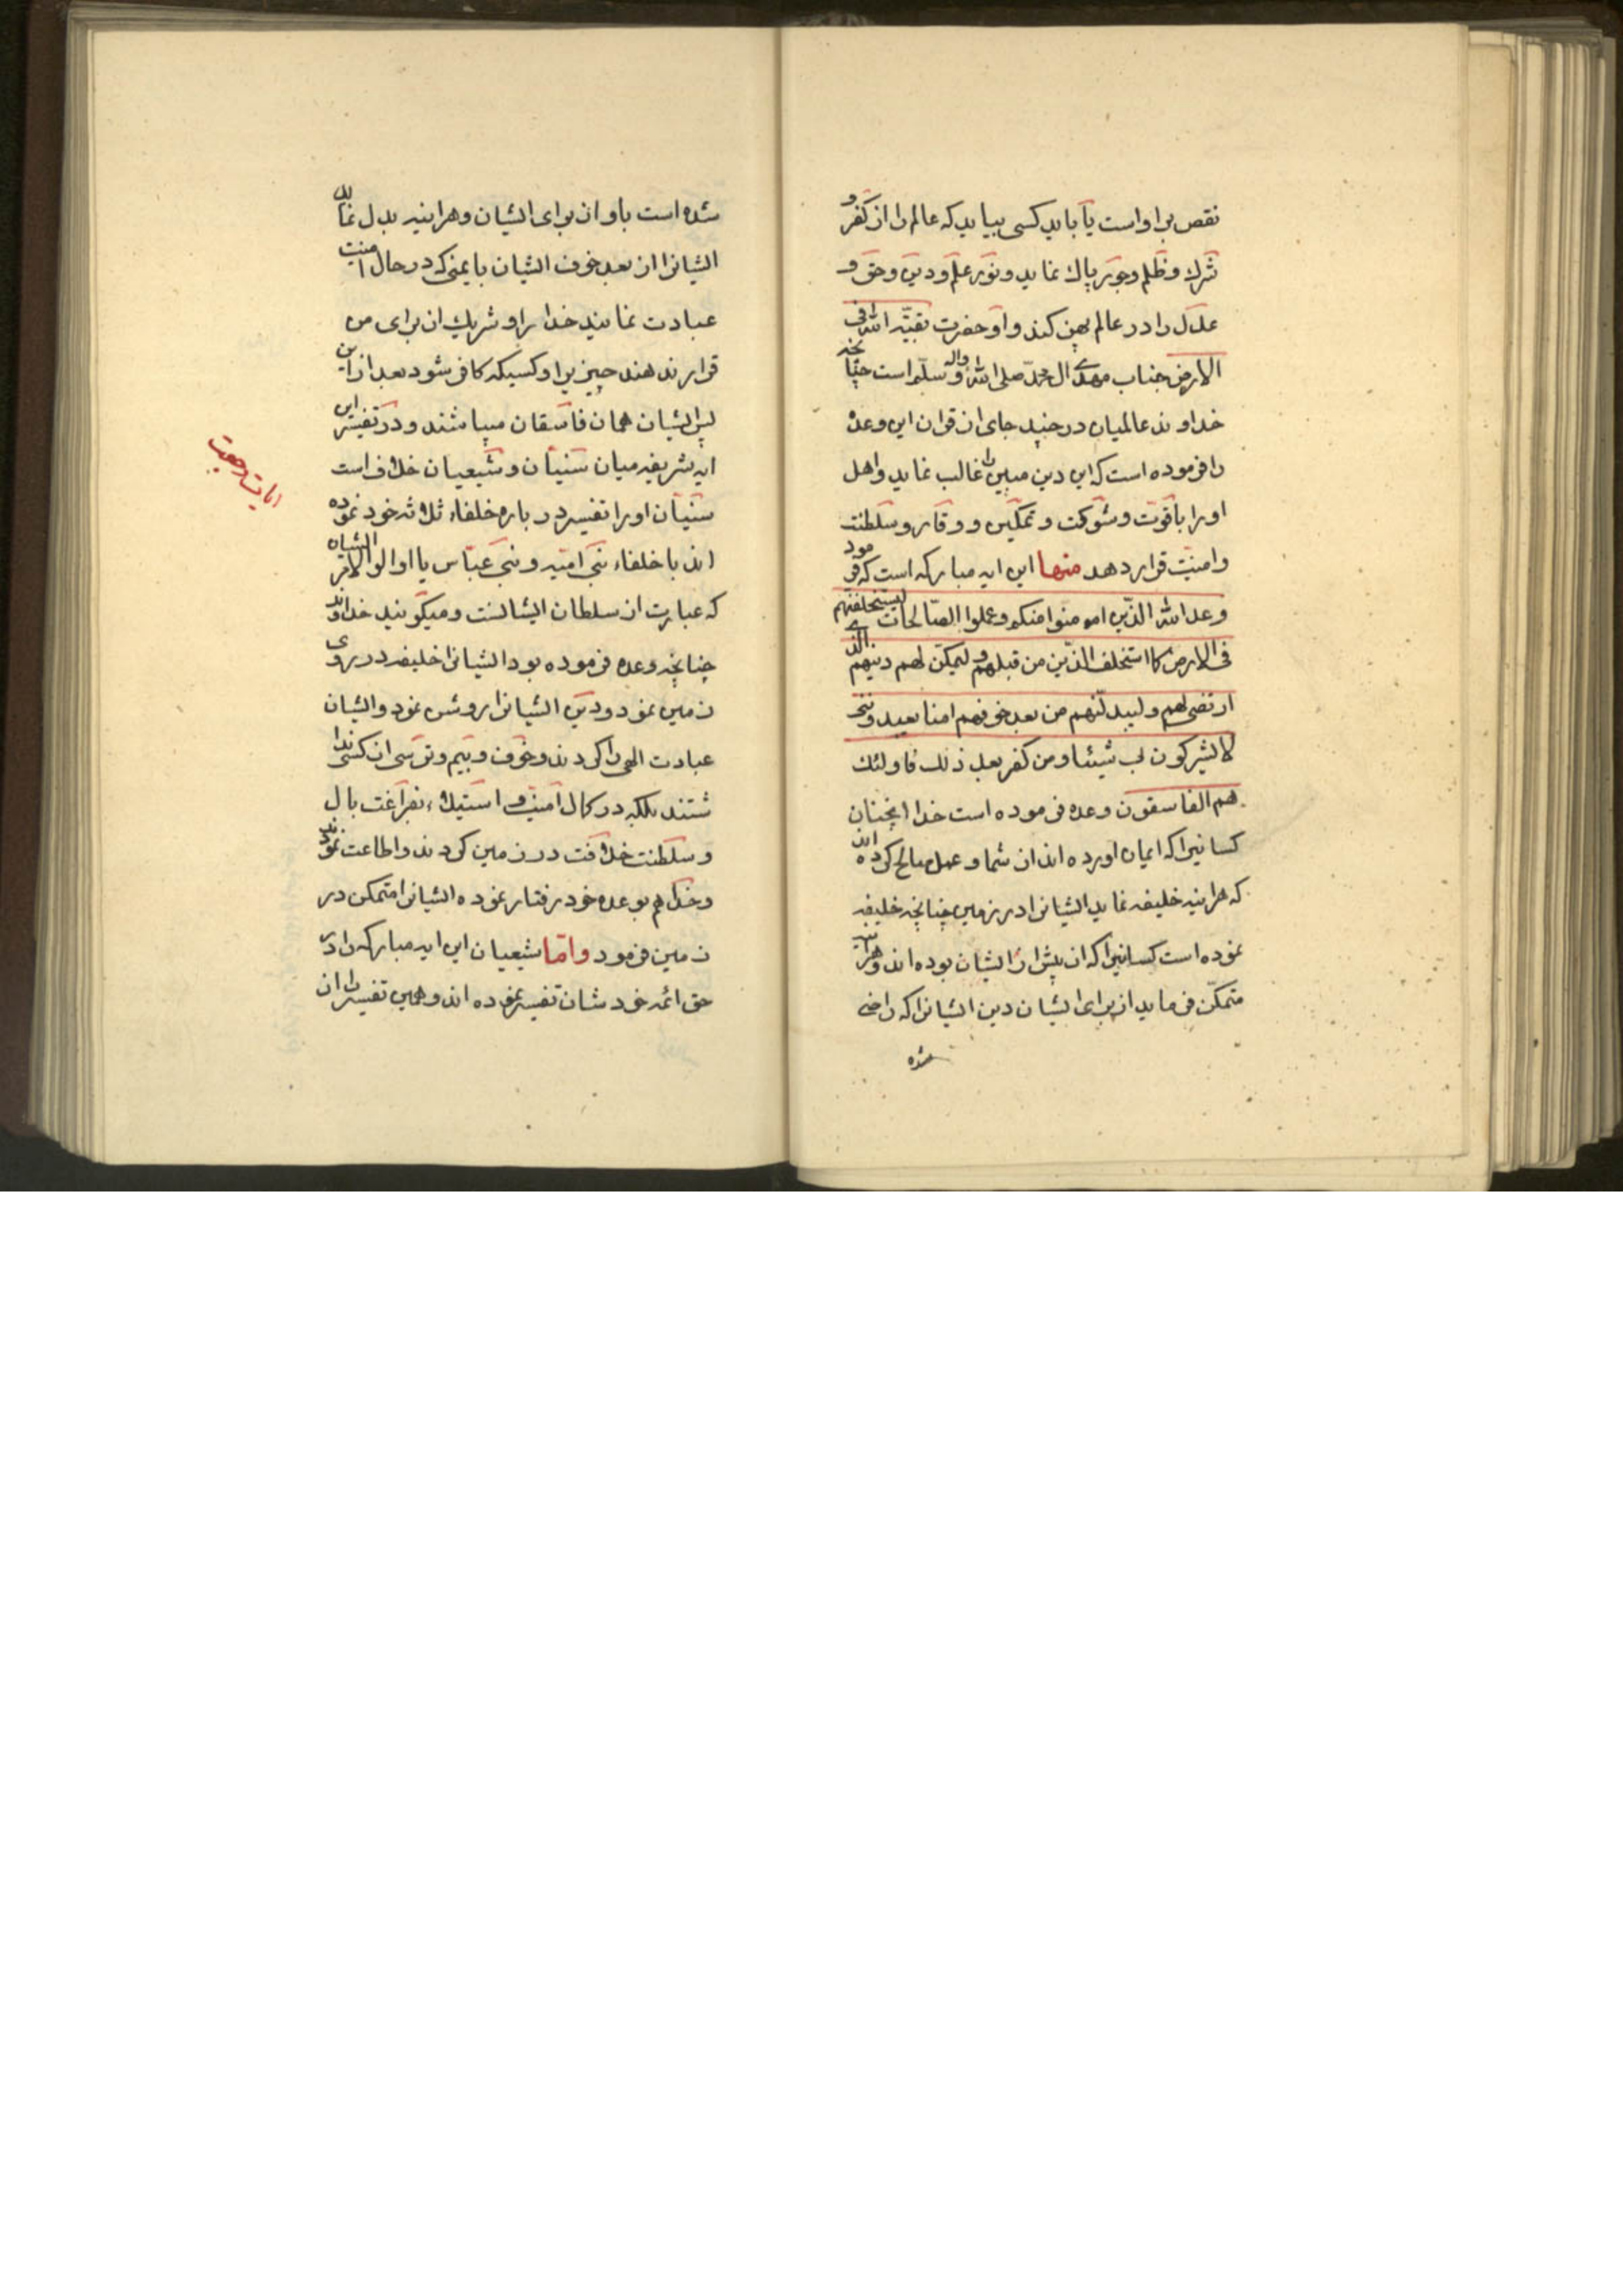 نقص بر او است یا باید کسی بیاید که عالم را از کفر و
شرك و ظلم و جور پاك نماید و نور علم و دین و حق و
عدل را در عالم پهن کند و او حضرت بقیّه الله فی
الارض جناب مهدی ال محمّد صلی الله و اله و سلّم است چنانچه
خداوند عالمیان در چنید جای از قران این وعده
را فرموده است که این دین مبین را غالب نماید و اهل
او را با قوت و شوکت و تمکین و وقار و سلطنت
و امنیّت قرار دهد منها این ایه مبارکه است که فرمود
وعد الله الذین امنوا منکم و عملوا الصّالحات لیستخلفنهم
فی الارض کما استخلف الذین من قبلهم و لیمکنّ لهم دینهم الذی
ارتضی لهم و لیبدلنّهم من بعد خوفهم امنا یعبدوننی
لا یشرکون بی شیئا و من کفر بعد ذلك فاولئك
هم الفاسقون وعده فرموده است خدا انچنان
کسانیرا که ایمان اورده اند از شما و عمل صالح کرده اند
که هراینه خلیفه نماید ایشانرا در زمین چنانچه خلیفه
نموده است کسانیرا که از پیش از ایشان بوده اند و هراینه
متمکّن فرماید از برای ایشان دین ایشانرا که راضی
شده
شده است باو از برای ایشان و هراینه بدل نماید
ایشانرا از بعد خوف ایشان بایمنی که در حال امنیت
عبادت نمایند خدا را و شریك از برای من
قرار ندهند چیزیرا و کسیکه کافر شود بعد از این
پس ایشان همان فاسقان میباشند و در تفسیر این
ایه شریفه میان سنیان و شیعیان خلاف است
سنیان او را تفسیر در باره خلفاء ثلاثه خود نموده
اند با خلفاء بنی امیّه و بنی عبّاس یا اوالوالامر ایشان
که عبارت از سلطان ایشانست و میکویند خداوند
چنانچه وعده فرموده بود ایشانرا خلیفه در روی
زمین نمود و دین ایشانرا روشن نمود و ایشان
عبادت الهی را کردند و خوف و بیم و ترسی از کسی ندا
شتند بلکه در کمال امنیت و استیلاء بفراغت بال
و سلطنت خلافت در زمین کردند و اطاعت نمودند
و خدا هم بوعده خود رفتار نموده ایشانرا متمکن در
زمین فرمود و امّا شیعیان این ایه مبارکه را در
حق ائمه خودشان تفسیر نموده اند و همین تفسیر را از
ایات رجعت